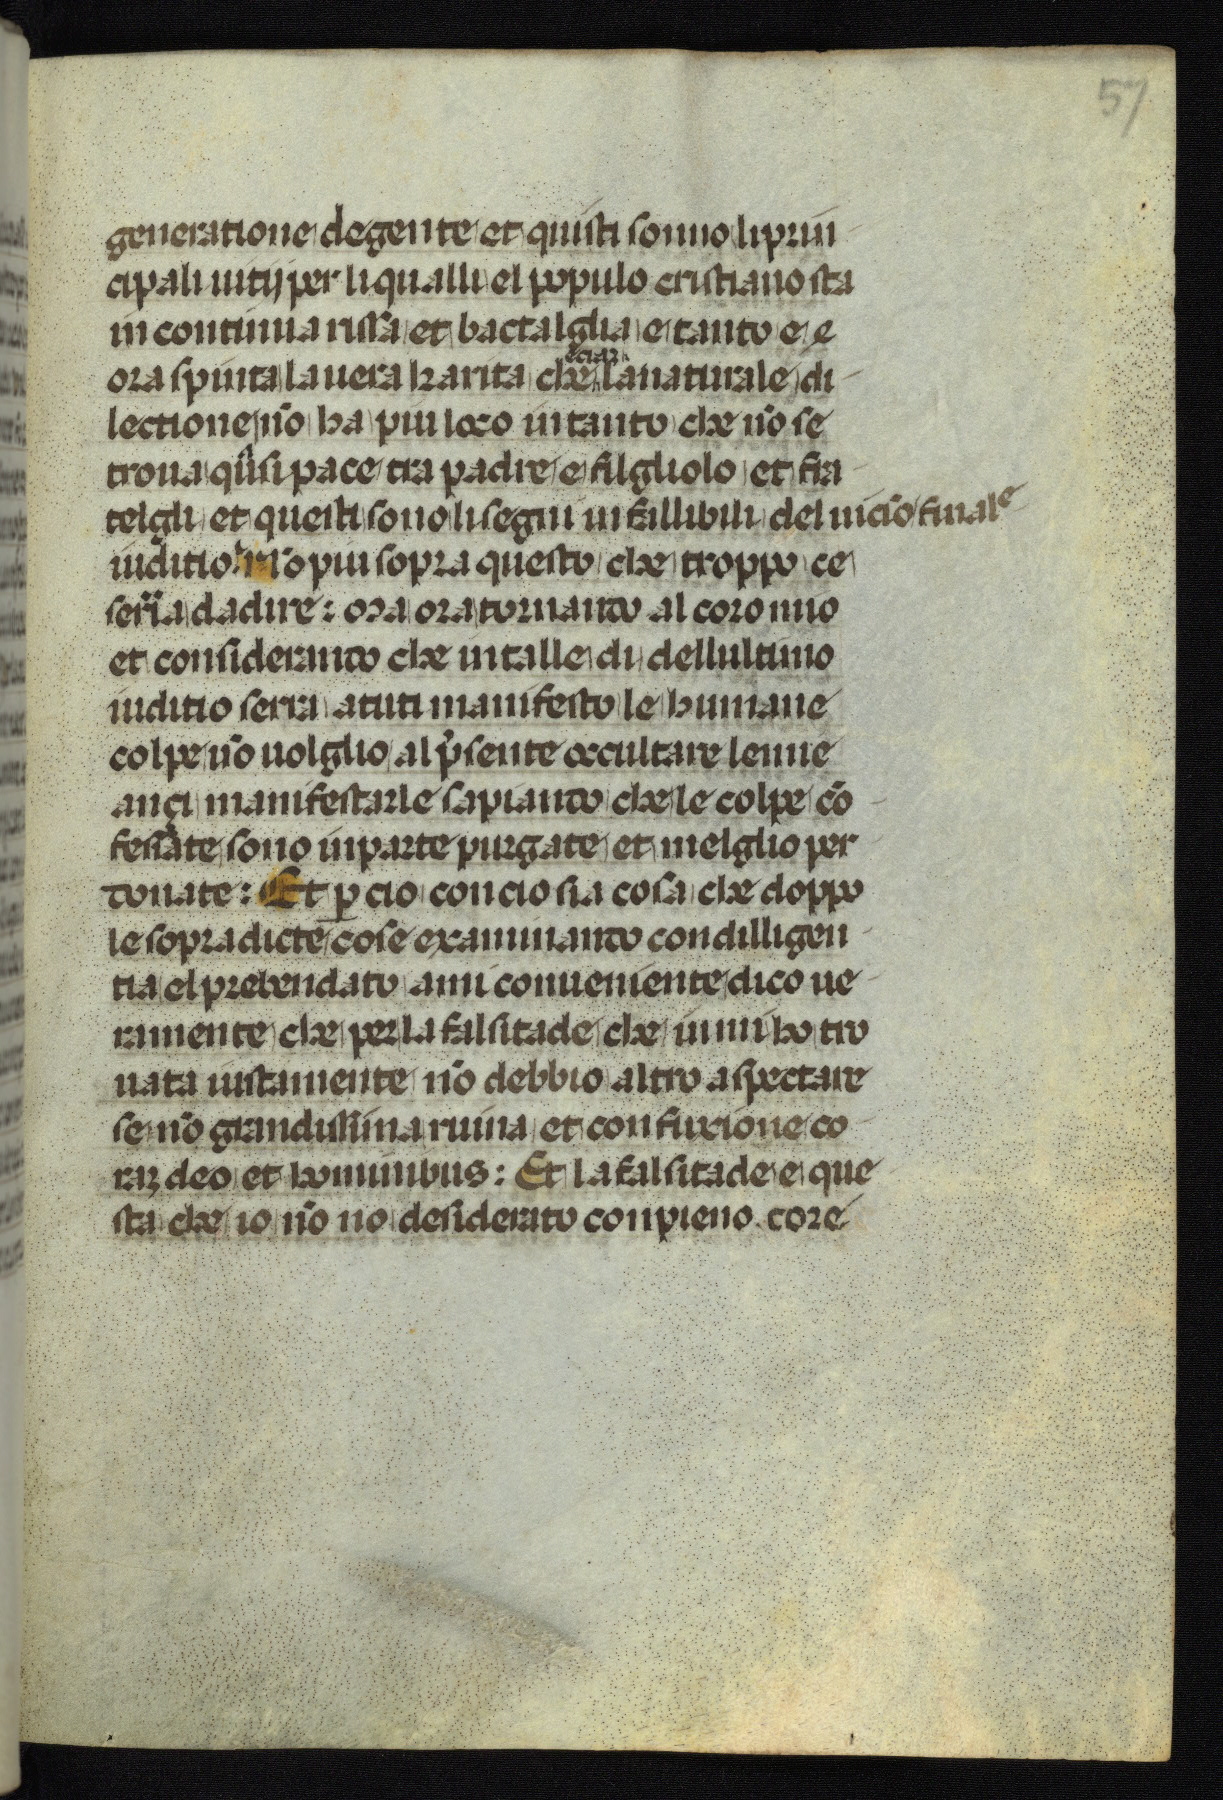 57
generatione de gente et quisti sonno li prin
cipali uitij per li qualli el populo cristiano sta
in continua rissa et bactalglia e tanto e e
ora spinta la uera karita che eciaꝫ la naturale di
lectione nō ha piu loco in tanto che nō se
troua qᵃsi pace tra padre e filgliolo et fra
telgli et questi sono li segni infallibili del uicīo finale
iuditio. Nō piu sopra questo che troppo ce
seria da dire: ora ora tornando al coro mio
et considerando che in talle di dellultimo
iuditio serra a tuti manifesto le humane
colpe nō uolglio al p̄sente occultare le mie
ançi manifestarle sapiando che le colpe cō
fessate sono in parte purgate et melglio per
donate: Et ꝑ cio con cio sia cosa che doppo
le sopra dicte cose examinando con dilligen
tia el prebendato a mi conueniente dico ue
ramente che per la falsitade che in mi ho tro
uata iustamente nō debbio altro aspectare
se nō grandissima ruina et confuxione co
raꝫ deo et hominibus: Et la falsitade e que
sta che io nō no desiderato con pieno core